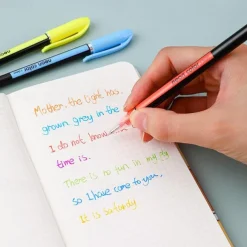 Mother, the light has
grown grey in the
I do not know
time is.
There is no fun in my
so I have come to you.
It is saturday